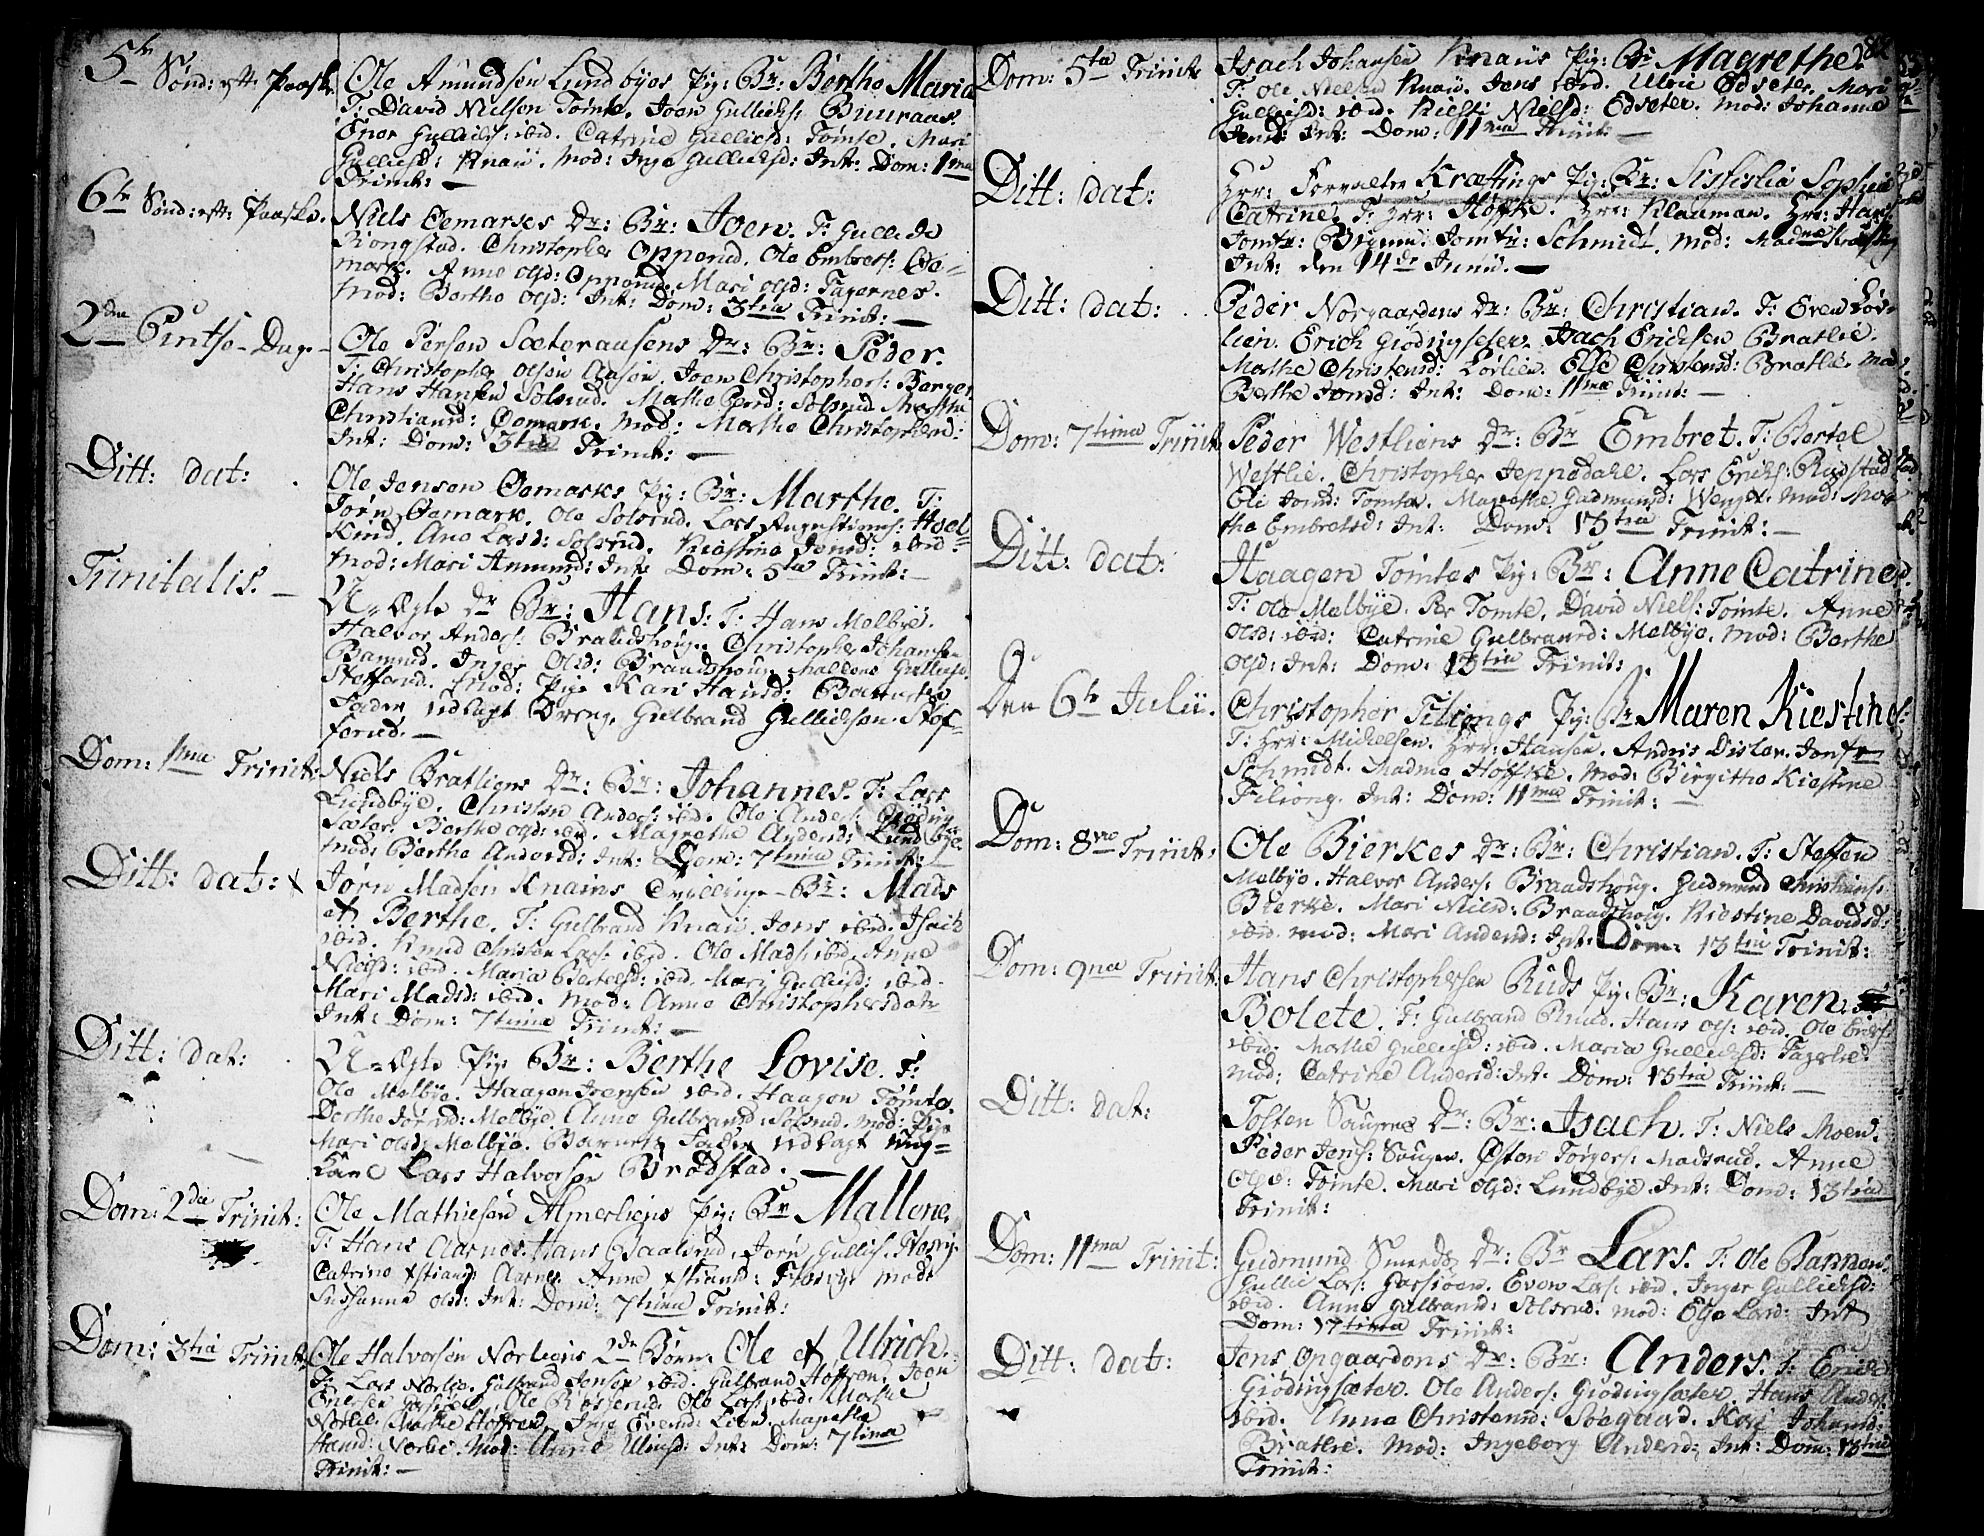 5te Sønd: eft: Paaske.
Ole Amundsen Lundbyes Pig: Br: Berthe Maria
T: David Nielsen Tomte. Joen Gulliks: Buuraas.
Enor Gulliks: ibid. Catrine Gullicsd: Tomte. Mari
Gullicsd: Knaii. Mod: Inge Gulliksd: Int: Dom: 1ma
Trinit: —
6te Sønd: eft: Paaske.
Niels Oemarkes Dr: Br: Joen. T: Gullik
Kiongstad. Christopher Opperud. Ole Embrets: Oe=
mark. Anne Olsd: Opperud. Mari Olsd: Fagernes.
Mod: Berthe Olsd: Int: Dom: 3tia Trinit: —
2den Pintse-Dag
Ole Persen Sæteraasens Dr: Br: Peder.
T: Christopher Olsen Aasen. Joen Christophers: Berger
Hans Hansen Solsrud. Marthe Persd: Solsrud. Marthe
Christiansd: Oemark. Mod: Marthe Christophersd:
Int: Dom: 3tia Trinit: —
Ditt: dat:
Ole Jensen Oemarks Pig: Br: Marthe. T:
Jørn Oemark. Ole Solsrud. Lars Augustinus:
Ane Larsd: Solsrud. Kiestine Jensd: ibid.
Mod: Mari Amunsd: Int: Dom: 5ta Trinit: —
Trinitatis. —
U-Ægte Dr Br: Hans. T: Hans Melbye.
Halvor Anders: Braadshoug. Christopher Johansen
Bamrud. Inger Olsd: Braadshoug. Mallene Gulliksd:
Stefferud. Mod: Pige Kari Hansd: Barnets
Fader udlagt Dreng. Gulbrand Gullichsen Stef-
ferud. —
Dom: 1ma Trinit:
Niels Bratliens Dr: Br: Johannes. T: Lars
Lundbye. Christen Anders: ibid. Ole Anders: Giøding
Sæter. Berthe Olsd: ibid. Magrethe Andersd: Lundbye.
Mod: Berthe Andersd: Int: Dom: 7tima Trinit: —
Ditt: dat:
Jørn Madsen Knaiins Tvillinge - Br: Mads
et Berthe. T: Gulbrand Knaii. Jens ibid. Isach
ibid. Knud Christen Lars: ibid. Ole Mads: ibid. Anne
Nielsd: ibid. Maria Bertelsd: ibid. Mari Gulliksd: ibid.
Mari Madsd: ibid. Mod: Anne Christophersdatr
Int: Dom: 7tima Trinit: —
Ditt: dat:
U-Ægte Pige Br: Berthe Lovise. T:
Ole Melbye. Haagen Joensen ibid. Haagen Tomte.
Berthe Jørnsd: Melbye. Anne Gulbrandsd: Solsrud. Mod: Pige
Mari Olsd: Melbye. Barnets Fader udlagt Ung-
karl Lars Halvorsen Brødstad. —
Dom: 2da Trinit:
Ole Mathiesen Almerliens Pig: Br Mallene.
T: Hans Aarnes. Hans Baalsrud. Jørn Gullis: Næsvig.
Catrine Xstiansd: Aarnes. Anne Xstiansd: Mod:
Sussanne Olsd: Int: Dom: 7tima Trinit:
Dom: 3tia Trinit:
Ole Halvorsen Norliens 2de Børn: Ole et Ulrich.
T: Lars Norlie. Gulbrand Jensen ibid. Gulbrand Hoffren. Joen
Ericksen Ole Røsterud. Ole Lars: ibid. Marthe
Norlie. Marthe Hoffren. Inge Evensd: Magrethe
Hansd: Norlie. Mod: Anne Ulricsd: Int: Dom: 7tima
Trinit: —
82
Dom: 5ta Trinit:
Isach Johansen Knaiis Pig: Br: Magrethe.
T: Ole Nielsen Knaii. Jens ibid. Ulric Edseter. Mari
Gulliksd: ibid. Kiesti Nielsd: Edseter. Mod: Johanne
Jensd: Int: Dom: 11ma Trinit: —
Ditt: dat:
Hrr: Forvalter Kræftings Pig: Br: Sishilia Sophia
Catrine. T: Hrr: Høffke. Hrr: Klauman. Hrr: Hans
Jomfr: Jomfr: Schmidt. Mod: Madme Kræfting
Int: den 14de Junii. —
Ditt: dat:
Peder Norgaardens Dr: Br: Christian. T: Even Lør-
lien. Erich Giødingseter. Isach Ericksen Bratlie.
Marthe Christensd: Lørlien. Else Christensd: Bratlie. Mod:
Berthe Jonsd: Int: Dom: 11ma Trinit: —
Dom: 7tima Trinit
Peder Westliens Dr: Br Embret. T: Bertel
Westlie. Christopher Jeppedahl. Lars Ericks: Rudstad
Oli Jonsd: Tomte. Magrethe Gudmunsd: Wenger. Mod: Mar-
the Embretsd: Int: Dom: 13tia Trinit: —
Ditt: dat:
Haagen Tomtes Pig: Br: Anne Catrine
T: Ole Melbye. Per Tomte. David Niels: Tomte. Anne
Olsd: ibid: Catrine Gulbrandsd: Melbye. Mod: Berthe
Olsd: Int: Dom: 13tia Trinit:
Den 6te Julii.
Christopher Filiongs Pig: Br Maren Kiestine
T: Hrr: Michelsen. Hrr: Hansen. Andris Dister. Jomfr
Schmidt. Madme Høffke. Mod: Birgitha Kiestine
Filiong. Int: Dom: 11ma Trinit: —
Dom: 8va Trinit:
Ole Bierkes Dr: Br: Christian. T: Steffen
Melbye. Halvor Anders: Braadshoug. Gudmund Christians:
Bierke. Mari Nielsd: Braadshoug. Kiestine Davidsd:
ibid. Mod: Mari Andersd: Int: Dom: 13tia Trinit:
Dom: 9na Trinit:
Hans Christophersen Ruds Pig: Br: Karen
Bolete. T: Gulbrand Rud. Hans Ols: ibid. Ole Ericks:
ibid. Marthe Gulliksd: ibid. Maria Gulliksd: Fagerlie.
Mod: Catrine Andersd: Int: Dom: 13tia Trinit: —
Ditt: dat:
Tosten Saugens Dr: Br: Isach. T: Niels Moen.
Peder Jens: Saugen. Østen Torgers: Madsrud. Anne
Olsd: Tomte. Mari Olsd: Lundbye. Int: Dom: 13tia
Trinit:
Dom: 11ma Trinit:
Gudmund Smeds Dr: Br Lars. T: Ole Bannen.
Gullic Lars: Garsioen. Even Lars: ibid. Inger Gulliksd:
ibid. Anne Gulbransd: Solsrud. Mod: Ege Larsd: Int
Dom: 17tima Trinit:
Ditt: dat:
Jens Opgaardens Dr: Br: Anders. T: Erick
Giødingsæter. Ole Anders: Giødingsæter. Hans Anders:
ibid. Anne Christensd: Søegaard. Kari Johansd:
Bratlie. Mod: Ingeborg Andersd: Int: Dom: 13tia
Trinit: